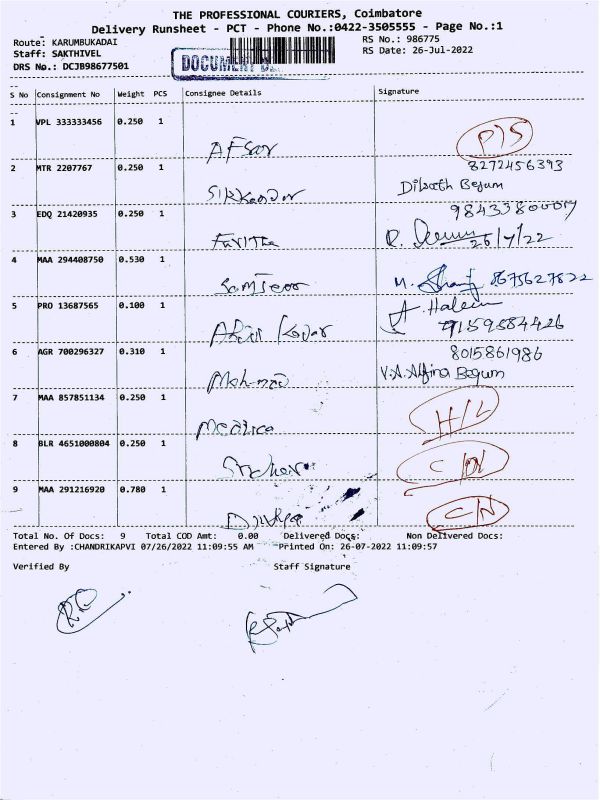 THE PROFESSIONAL COURIERS, Coimbatore
Delivery Runsheet - PCT - Phone No.:0422-3505555 - Page No.:1
Route: KARUMBUKADAI RS No.: 986775
Staff: SAKTHIVEL RS Date: 26-Jul-2022
DRS No.: DCJB98677501
DOCUMENT
S No Consignment No Weight PCS Consignee Details Signature
1 VPL 333333456 0.250 1
Afsar P/S
2 MTR 2207767 0.250 1 8272456393
Sikkandar Dilsath Begum
3 EDQ 21420935 0.250 1
Faritha R. 26/7/22
4 MAA 294408750 0.530 1
M. 8675627822
5 PRO 13687565 0.100 1 A. Haleem
9159584426
6 AGR 700296327 0.310 1 8015861986
V.A. Alfina Begum
7 MAA 857851134 0.250 1
H/L
8 BLR 4651000804 0.250 1
9 MAA 291216920 0.780 1
C/N
Total No. Of Docs: 9 Total COD Amt: 0.00 Delivered Docs: Non Delivered Docs:
Entered By :CHANDRIKAPVI 07/26/2022 11:09:55 AM Printed On: 26-07-2022 11:09:57
Verified By Staff Signature